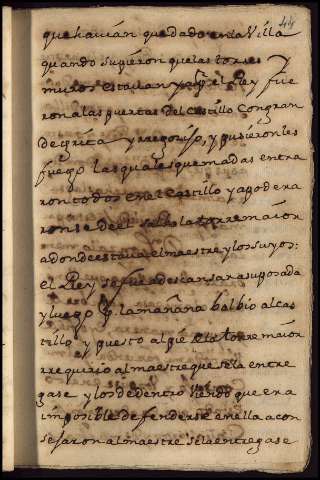 44
que havian quedado en la Villa
quando supieron que las torres y
muros estavan por el Rey fue
ron a las puertas del Castillo Con gran
de grita y regocijo, y pusieronles
fuego las quales quemadas entra
ron todos en el Castillo y apodera
ronse de el salbo la torre maior
adonde estava el maestre y los suyos:
el Rey se fue a descansar a su posada
y luego por la mañana bolbio al cas
tillo, y puesto al pie de la torre maior
rrequirio al maestre que se la entre
gase y los de dentro viendo que era
imposible defenderse en ella acon
sejaron al maestre se la entregase